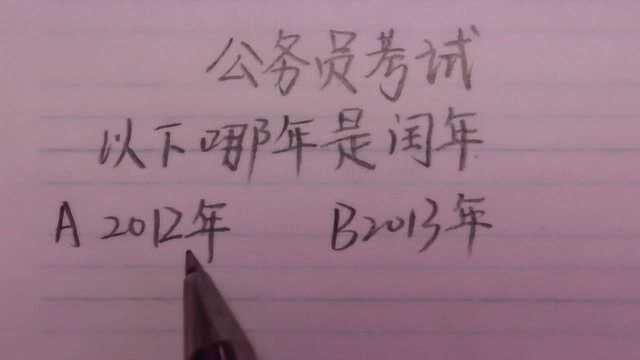 公务员考试
以下哪年是闰年
A 2012年 B 2013年